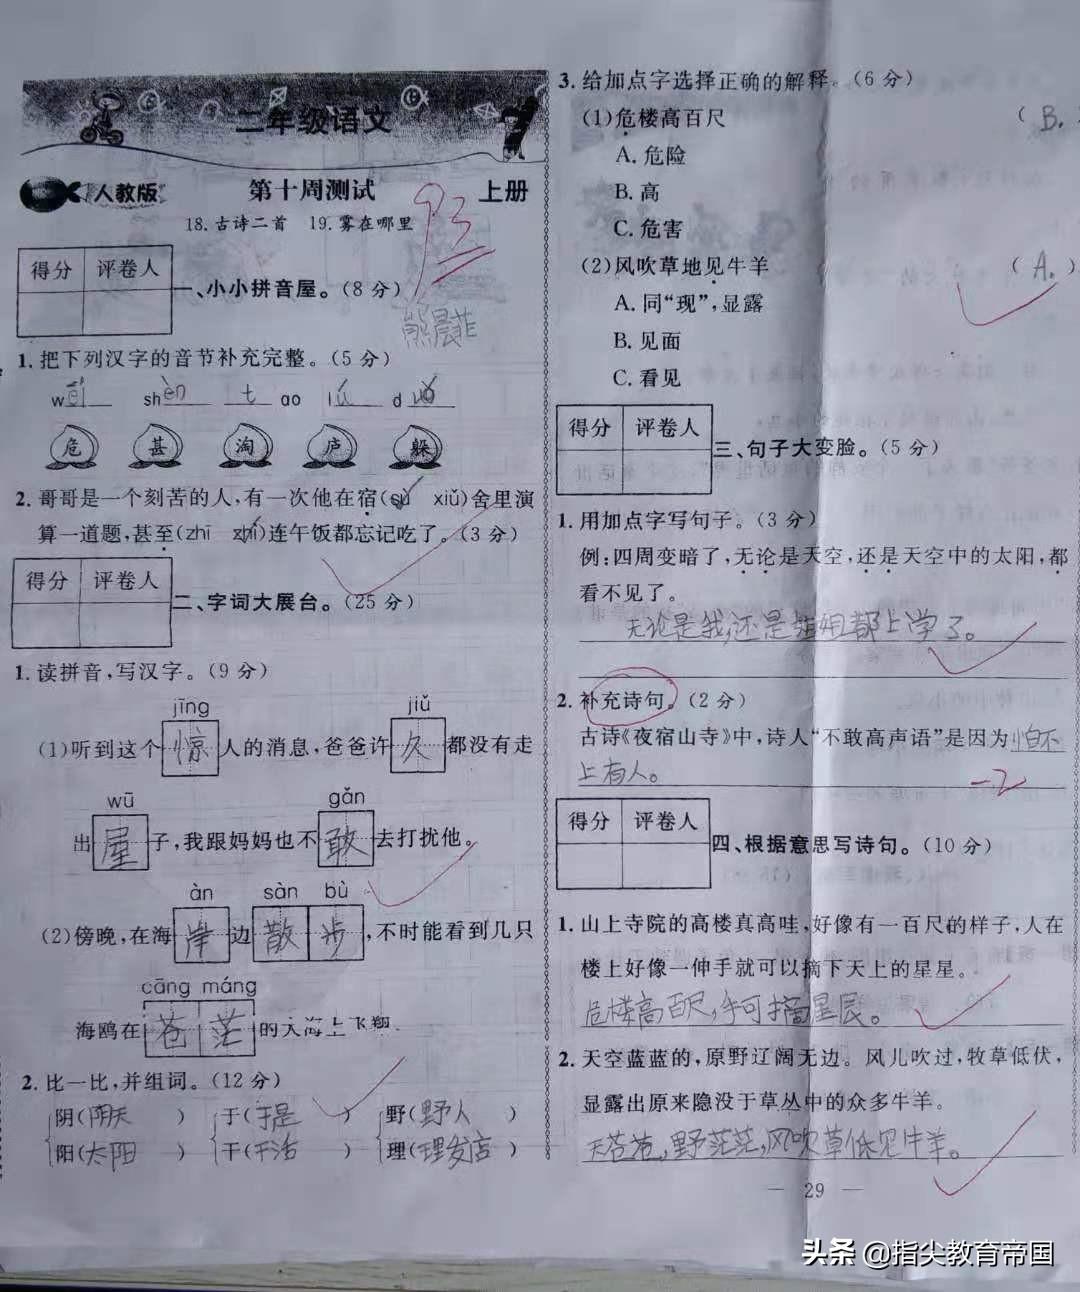 二年级语文
人教版 第十周测试 上册
93
18.古诗二首 19.雾在哪里
得分 评卷人
一、小小拼音屋。(8分)
熊晨菲
1.把下列汉字的音节补充完整。(5分)
wēi shèn t ao lú d uǒ
危 甚 淘 庐 躲
2.哥哥是一个刻苦的人,有一次他在宿(sù xiǔ)舍里演
算一道题,甚至(zhī zhì)连午饭都忘记吃了。(3分)
得分 评卷人
二、字词大展台。(25分)
1.读拼音,写汉字。(9分)
jīng jiǔ
(1)听到这个惊人的消息,爸爸许久都没有走
wū gǎn
出屋子,我跟妈妈也不敢去打扰他。
àn sàn bù
(2)傍晚,在海岸边散步,不时能看到几只
cāng máng
海鸥在苍茫的大海上飞翔.
2.比一比,并组词。(12分)
阴(阴天) 于(于是) 野(野人)
阳(太阳) 干(干活) 理(理发店)
3.给加点字选择正确的解释。(6分)
(1)危楼高百尺 (B.
A.危险
B.高
C.危害
(2)风吹草地见牛羊 (A.)
A.同“现”,显露
B.见面
C.看见
得分 评卷人
三、句子大变脸。(5分)
1.用加点字写句子。(3分)
例:四周变暗了,无论是天空,还是天空中的太阳,都
看不见了。
无论是我,还是姐姐都上学了。
2.补充诗句。(2分)
古诗《夜宿山寺》中,诗人“不敢高声语”是因为怕不
上有人。
-2
得分 评卷人
四、根据意思写诗句。(10分)
1.山上寺院的高楼真高哇,好像有一百尺的样子,人在
楼上好像一伸手就可以摘下天上的星星。
危楼高百尺,手可摘星辰。
2.天空蓝蓝的,原野辽阔无边。风儿吹过,牧草低伏,
显露出原来隐没于草丛中的众多牛羊。
天苍苍,野茫茫,风吹草低见牛羊。
— 29 —
头条 @指尖教育帝国